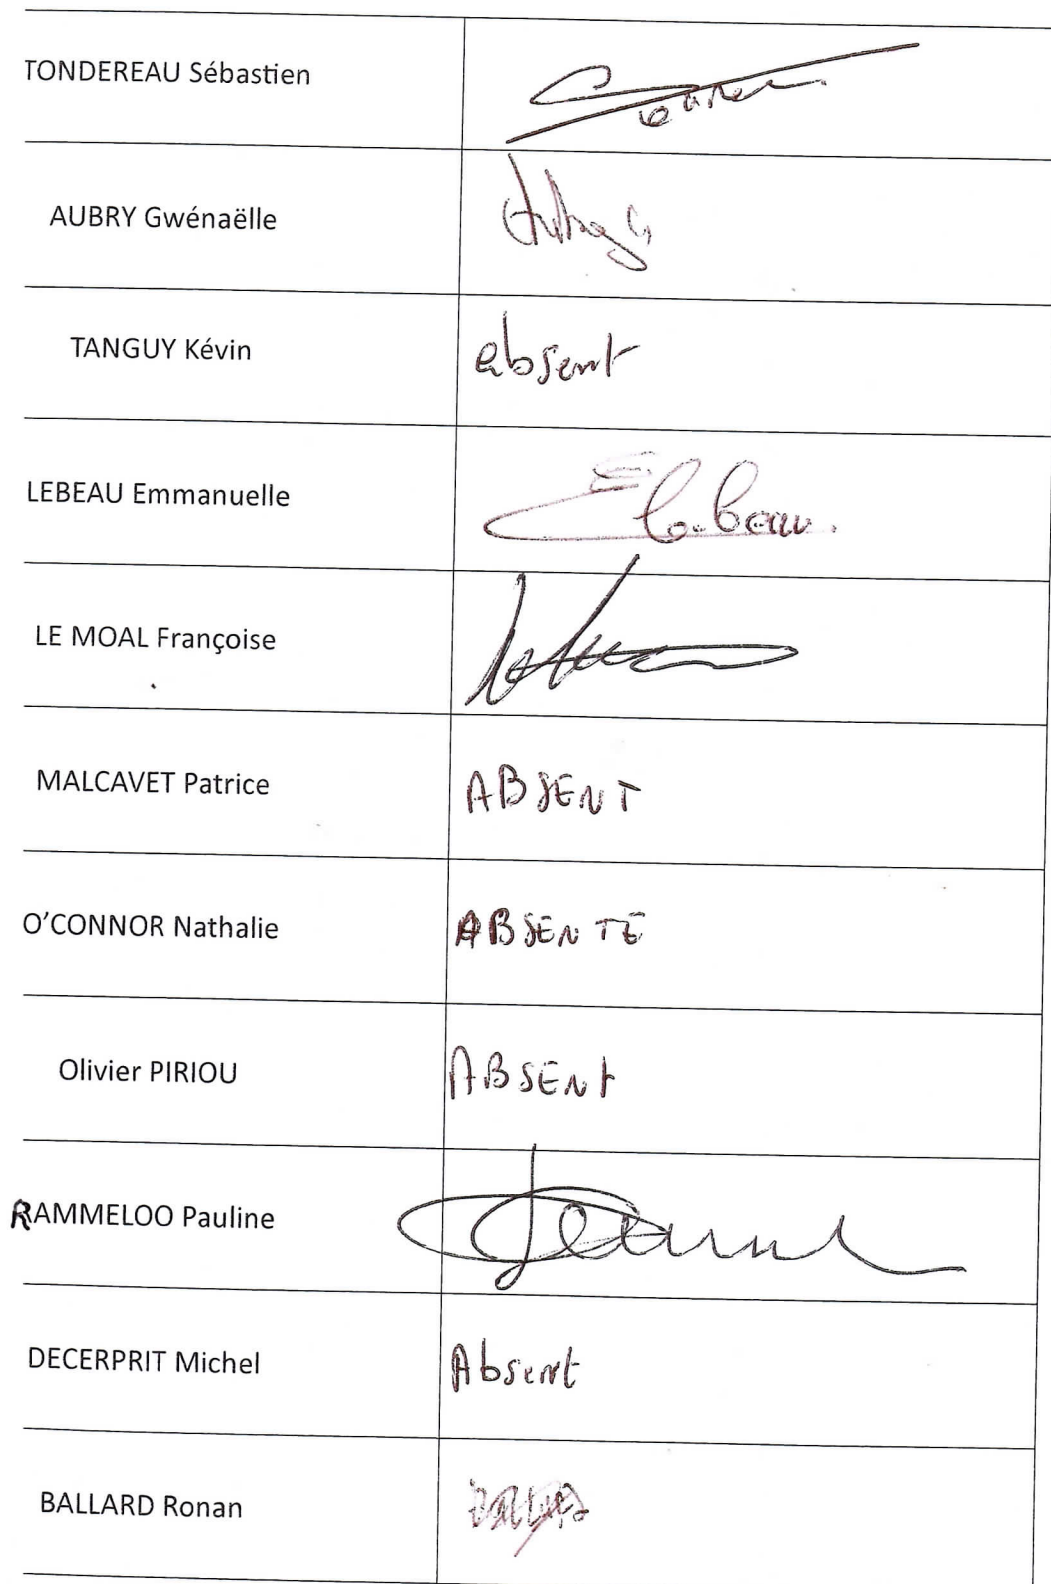 TONDEREAU Sébastien
AUBRY Gwénaëlle
TANGUY Kévin absent
LEBEAU Emmanuelle E Lebeau.
LE MOAL Françoise
MALCAVET Patrice ABSENT
O'CONNOR Nathalie ABSENTE
Olivier PIRIOU ABSENT
RAMMELOO Pauline
DECERPRIT Michel Absent
BALLARD Ronan